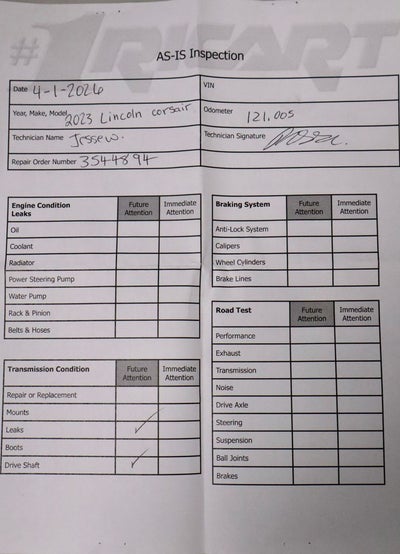 #1 RICART
AS-IS Inspection
Date 4-1-2026 VIN
Year, Make, Model 2023 Lincoln corsair Odometer 121,005
Technician Name Jessew. Technician Signature
Repair Order Number 3544894
Engine Condition Leaks Future Attention Immediate Attention
Oil
Coolant
Radiator
Power Steering Pump
Water Pump
Rack & Pinion
Belts & Hoses
Transmission Condition Future Attention Immediate Attention
Repair or Replacement
Mounts
Leaks ✓
Boots
Drive Shaft ✓
Braking System Future Attention Immediate Attention
Anti-Lock System
Calipers
Wheel Cylinders
Brake Lines
Road Test Future Attention Immediate Attention
Performance
Exhaust
Transmission
Noise
Drive Axle
Steering
Suspension
Ball Joints
Brakes